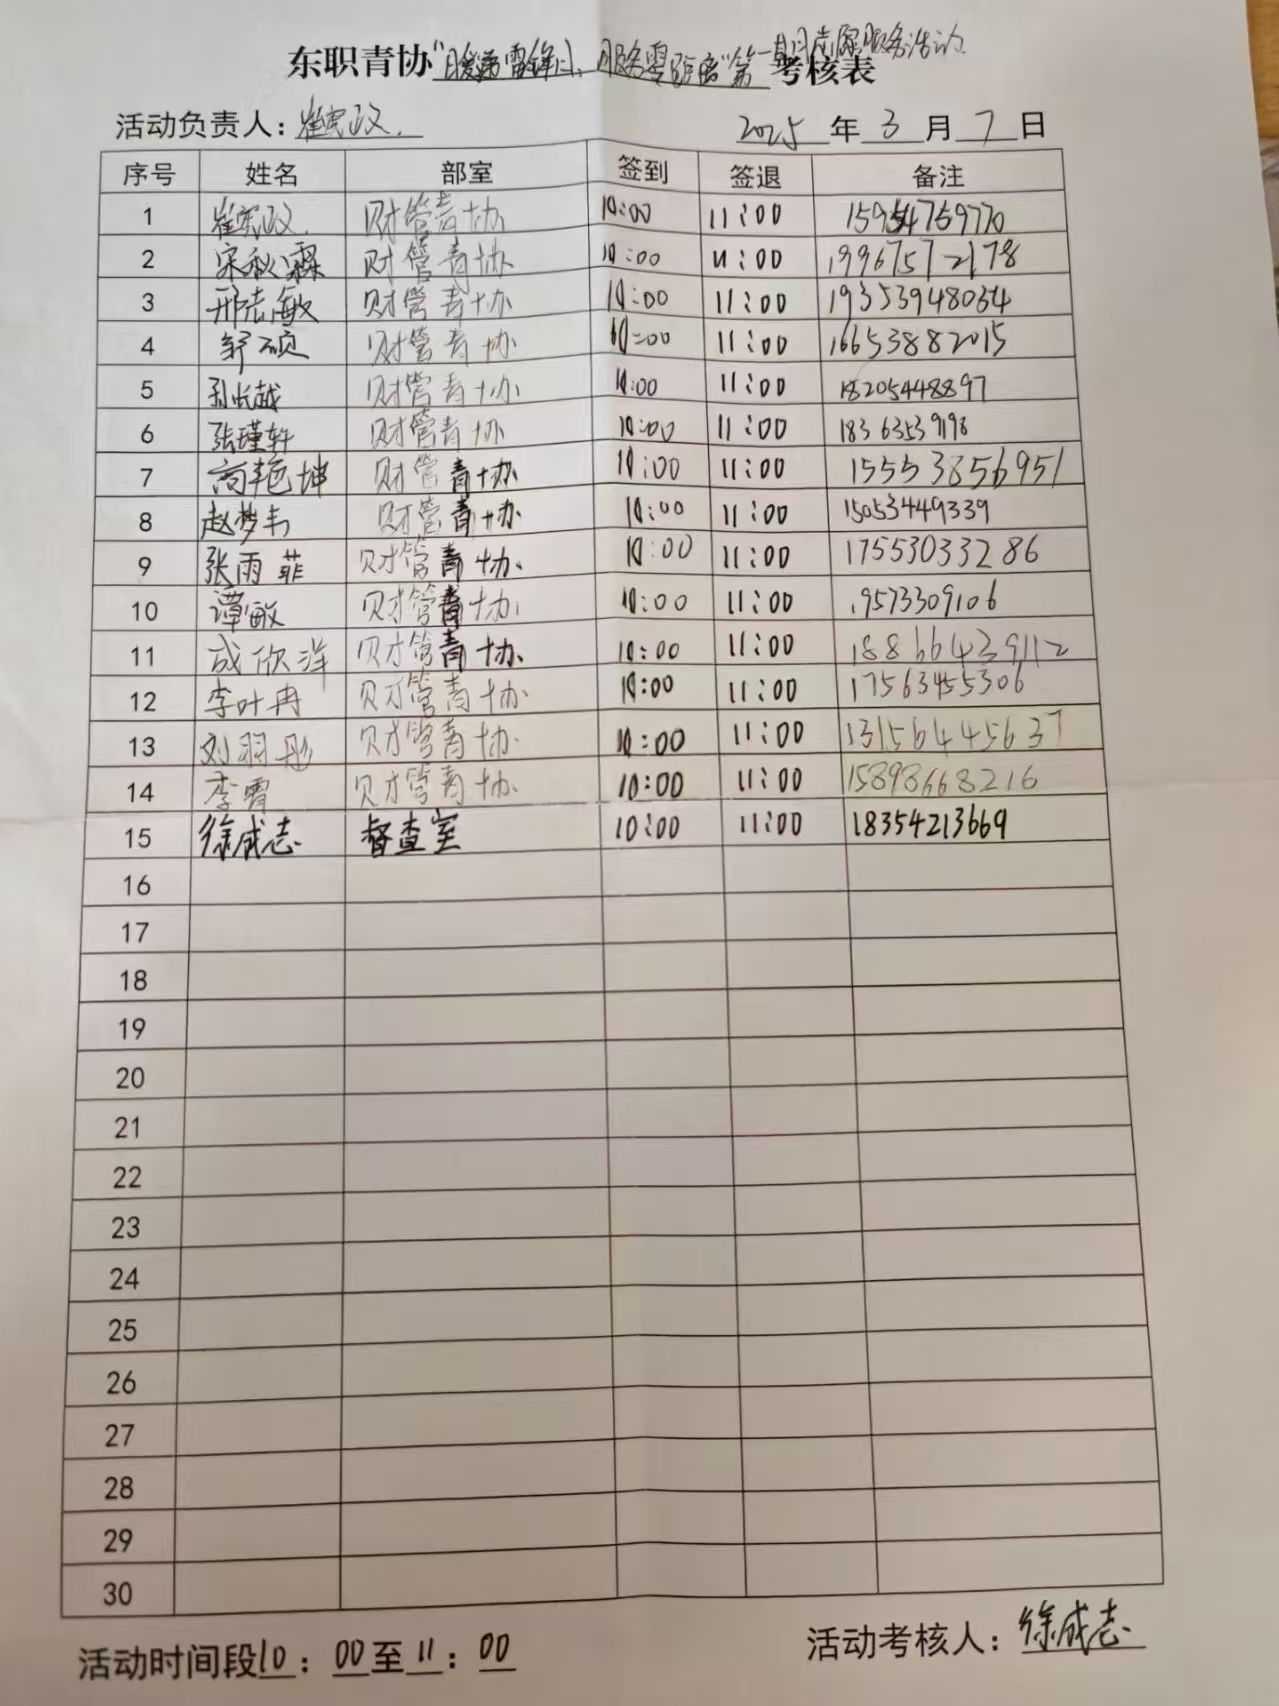 东职青协“暖满雷锋月、服务零距离”第一期志愿服务活动考核表
活动负责人：崔宪政
2025年3月7日
序号 姓名 部室 签到 签退 备注
1 崔宪政 财管青协 10:00 11:00 15954759770
2 宋秋霖 财管青协 10:00 11:00 19967572178
3 邢志敏 财管青协 10:00 11:00 19353948054
4 舒硕 财管青协 10:00 11:00 16653882015
5 孙长越 财管青协 10:00 11:00 18205448897
6 张瑾轩 财管青协 10:00 11:00 18363539198
7 高艳坤 财管青协 10:00 11:00 15553856951
8 赵梦韦 财管青协 10:00 11:00 15053449339
9 张雨菲 财管青协 10:00 11:00 17553033286
10 谭敏 财管青协 10:00 11:00 19573309106
11 成欣洋 财管青协 10:00 11:00 18866439112
12 李叶冉 财管青协 10:00 11:00 17563455306
13 刘羽彤 财管青协 10:00 11:00 13156445637
14 李霄 财管青协 10:00 11:00 15898668216
15 徐成志 督查室 10:00 11:00 18354213669
16
17
18
19
20
21
22
23
24
25
26
27
28
29
30
活动时间段10：00至11：00
活动考核人：徐成志